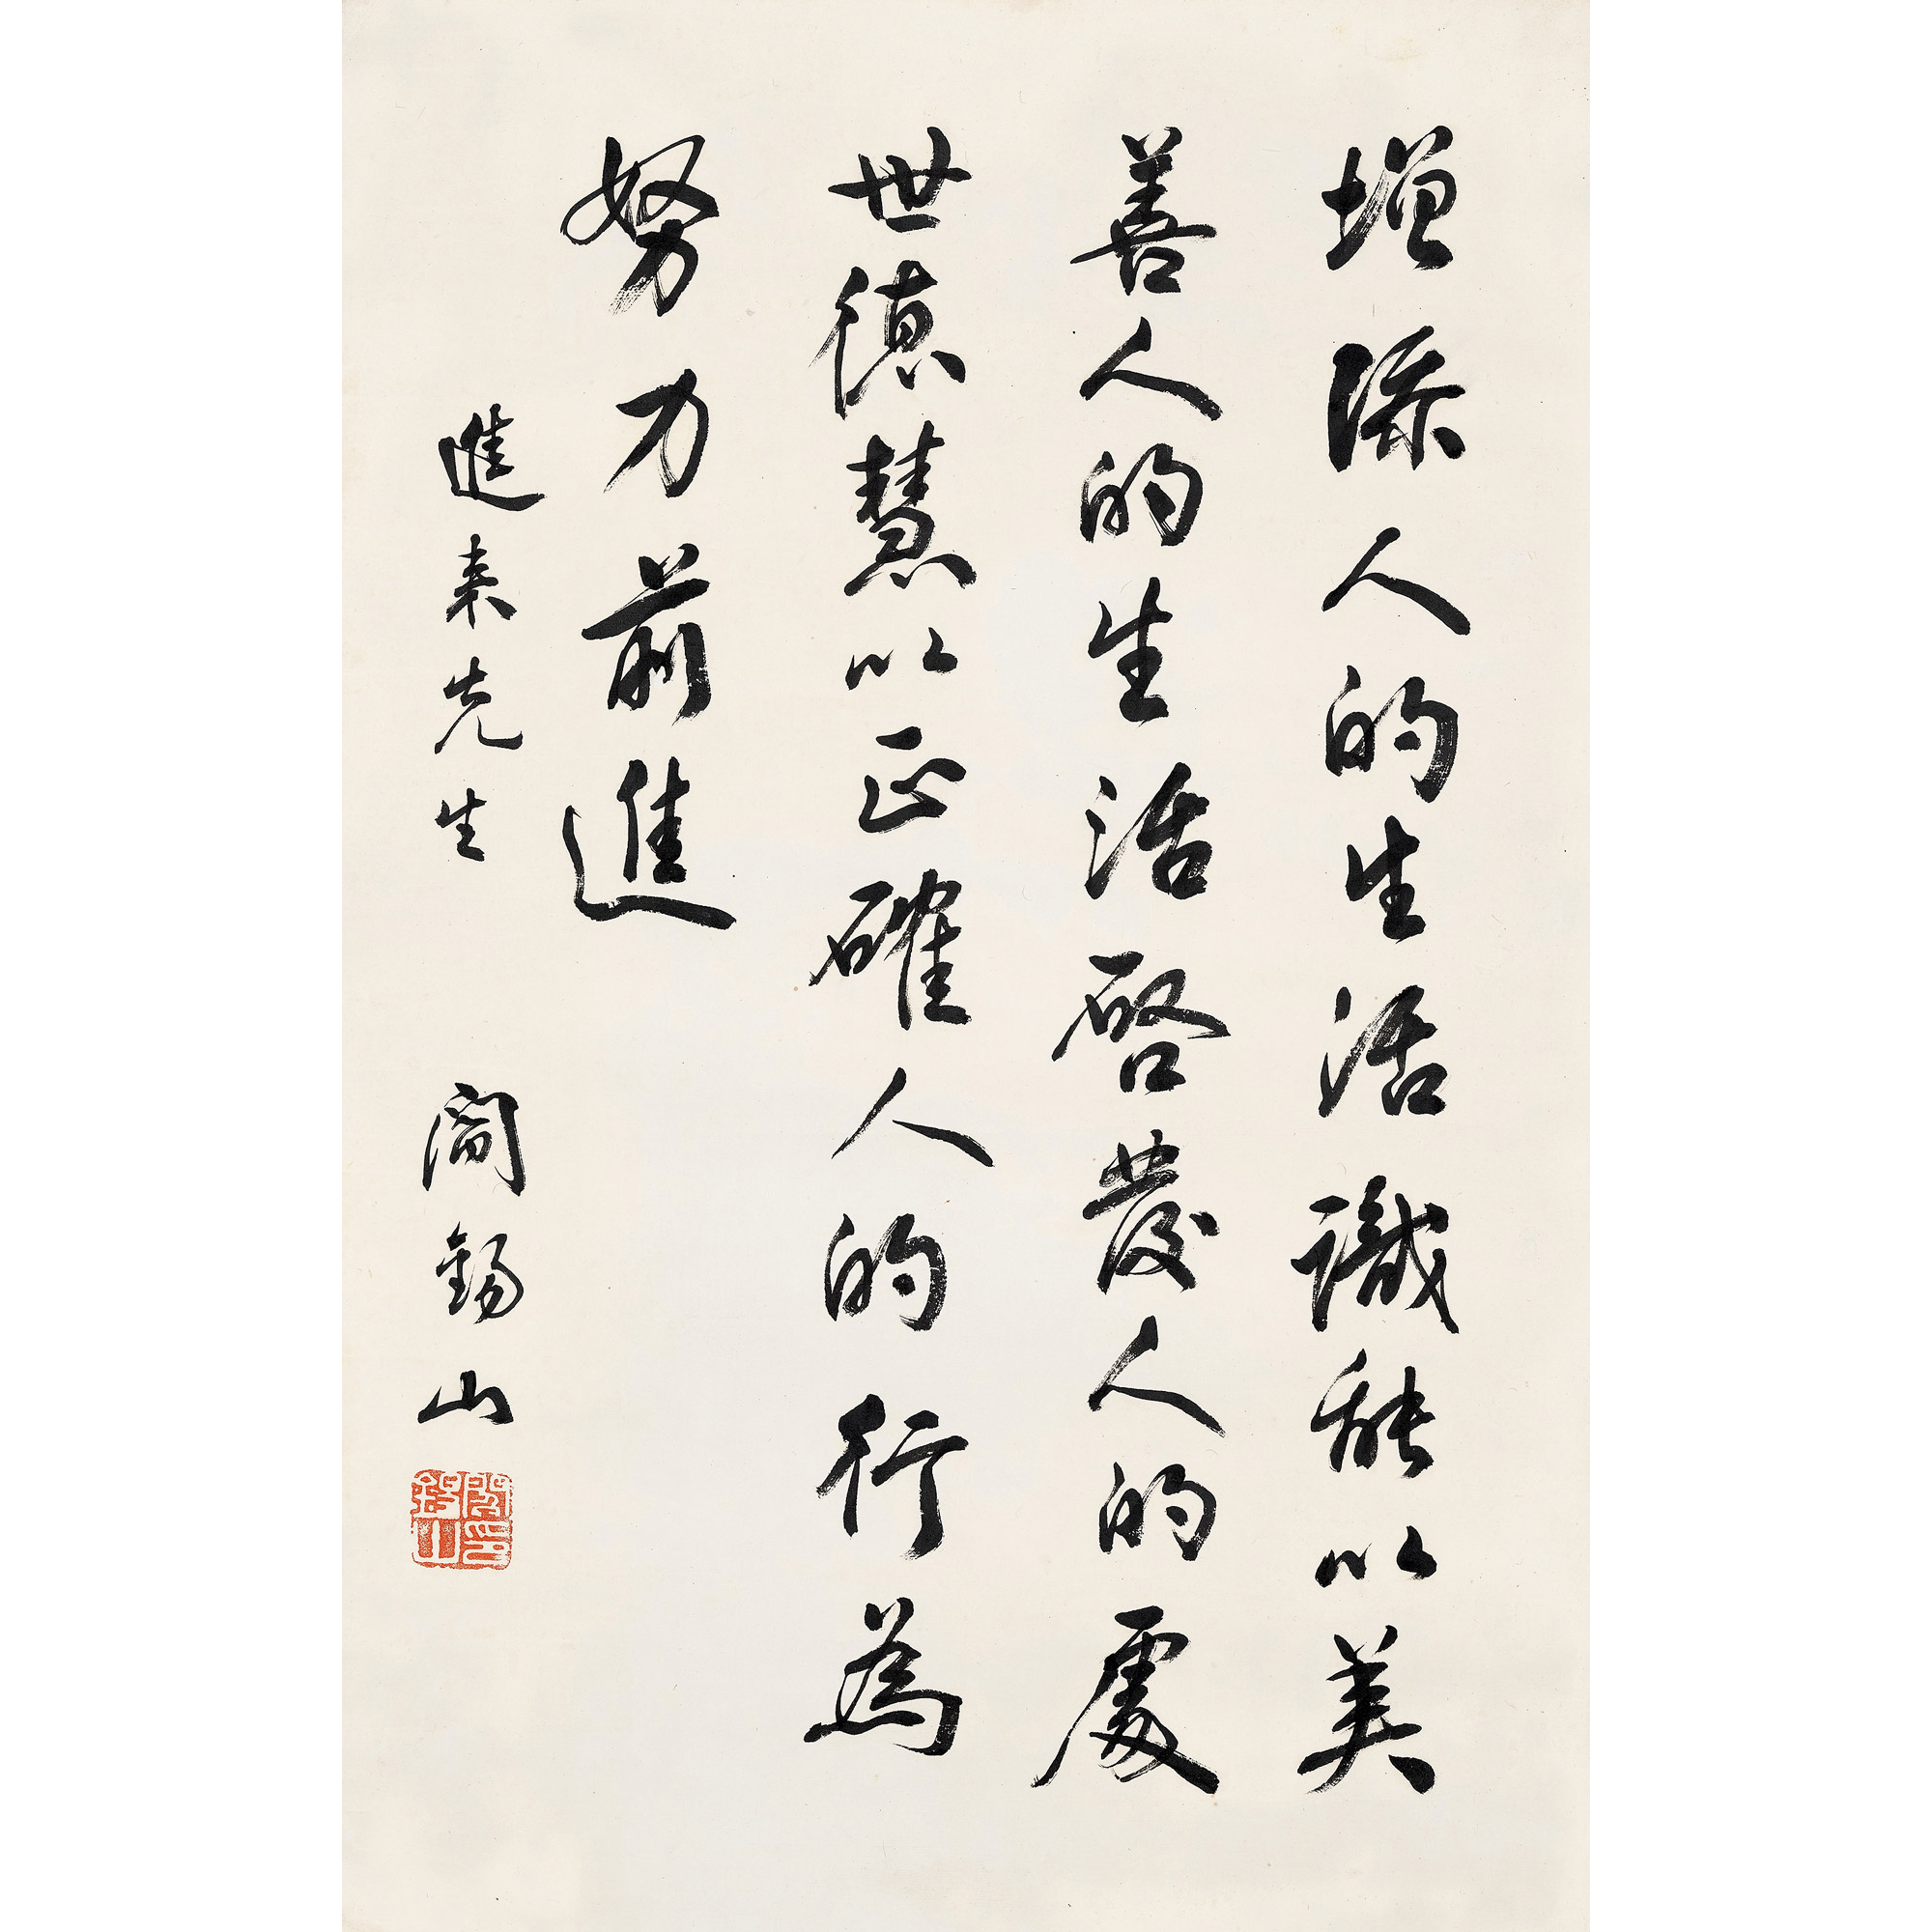 增添人的生活識能以美
善人的生活啓發人的處
世德慧以正確人的行為
努力前進
進来先生 閻錫山
閻印錫山